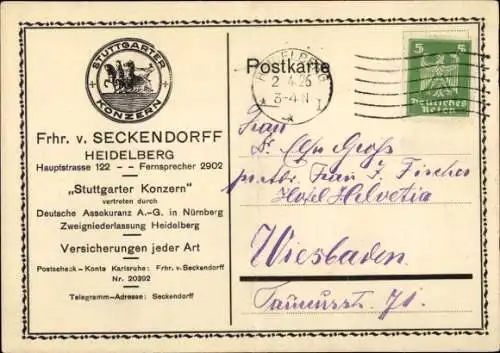 STUTTGARTER
KONZERN
Frhr. v. SECKENDORFF
HEIDELBERG
Hauptstrasse 122 - - Fernsprecher 2902
„Stuttgarter Konzern"
vertreten durch
Deutsche Assekuranz A.-G. in Nürnberg
Zweigniederlassung Heidelberg
Versicherungen jeder Art
Postscheck-Konto Karlsruhe: Frhr. v. Seckendorff
Nr. 20392
Telegramm-Adresse: Seckendorff
Postkarte
HEIDELBERG
2.4.26
3-4 N
1
5 5
Deutsches
Reich
Frau
Dr. Groß
Frau J. Fischer
Hotel Helvetia
Wiesbaden
Taunusstr.